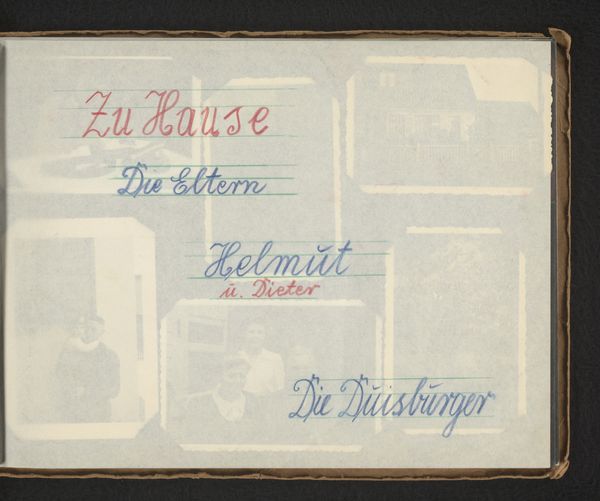 Zu Hause
Die Eltern
Helmut
u. Dieter
Die Duisburger